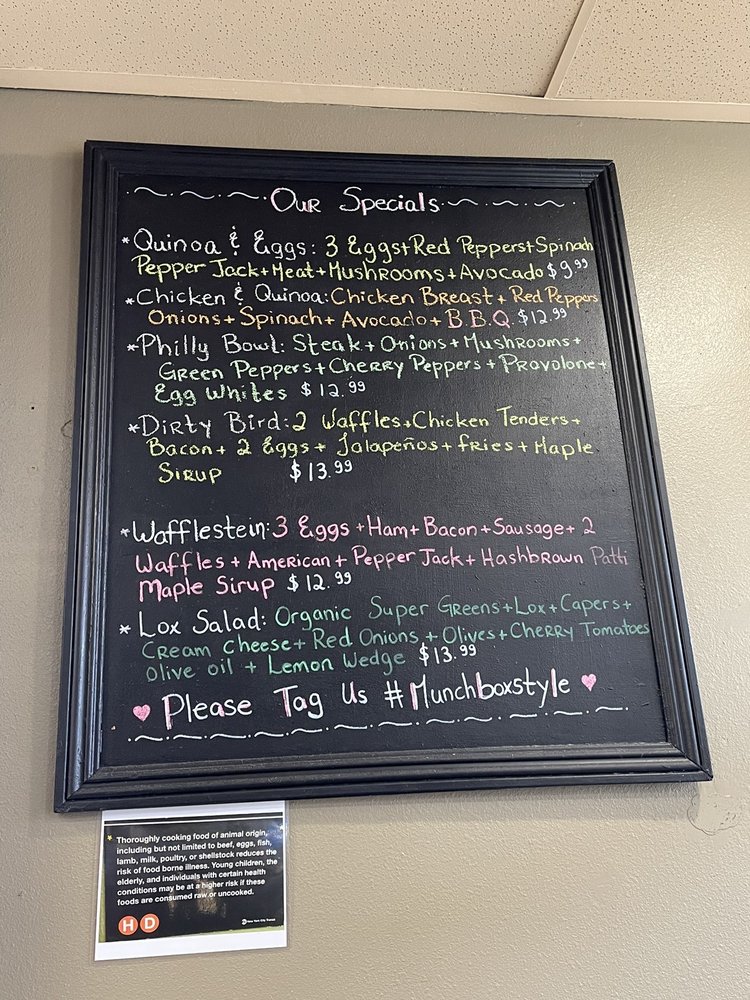 Our Specials
*Quinoa & Eggs: 3 Eggs+Red Peppers+Spinach
Pepper Jack+Meat+Mushrooms+Avocado $9.99
*Chicken & Quinoa: Chicken Breast + Red Peppers
Onions + Spinach + Avocado + B.B.Q. $12.99
*Philly Bowl: Steak + Onions + Mushrooms +
Green Peppers + Cherry Peppers + Provolone +
Egg Whites $12.99
*Dirty Bird: 2 Waffles+Chicken Tenders+
Bacon + 2 Eggs + Jalapeños + fries + Maple
Sirup $13.99
*Wafflestein: 3 Eggs + Ham + Bacon + Sausage + 2
Waffles + American + Pepper Jack + Hashbrown Patti
Maple Sirup $12.99
* Lox Salad: Organic Super Greens + Lox + Capers +
Cream Cheese + Red Onions + Olives + Cherry Tomatoes
olive oil + Lemon Wedge $13.99
Please Tag Us #Munchboxstyle
* Thoroughly cooking food of animal origin,
including but not limited to beef, eggs, fish,
lamb, milk, poultry, or shellstock reduces the
risk of food borne illness. Young children, the
elderly, and individuals with certain health
conditions may be at a higher risk if these
foods are consumed raw or uncooked.
H D
New York City Transit